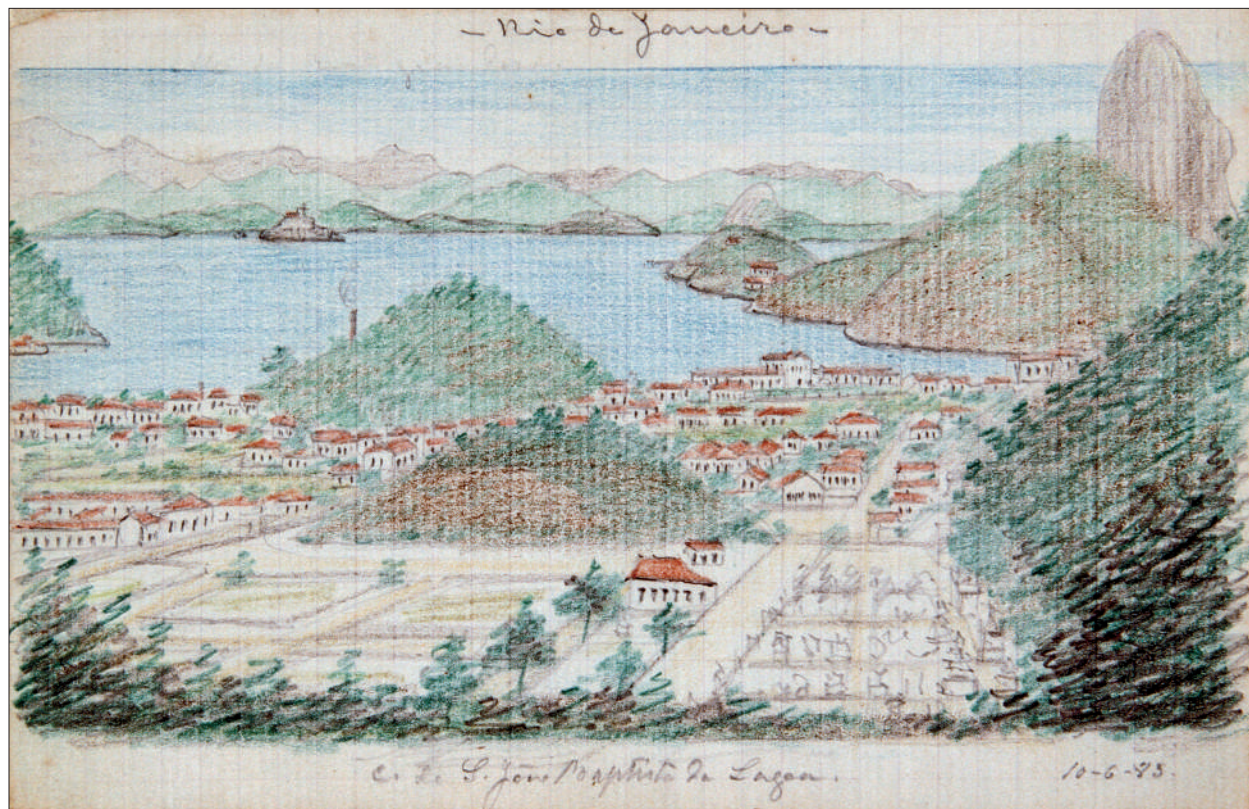 - Rio de Janeiro -
C. de S. João Baptista da Lagoa.
10-6-85.